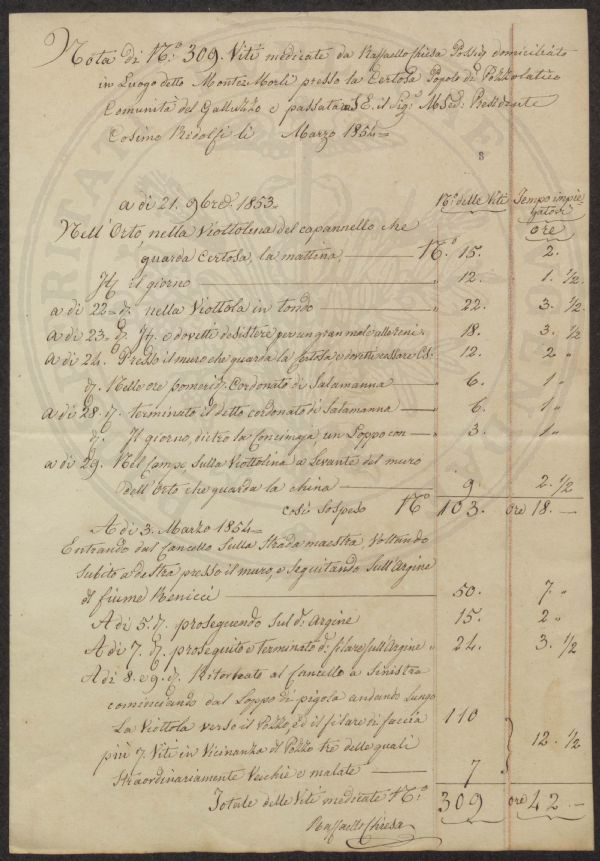 Nota di N.º 309. Viti medicate da Raffaello Chiesa Possid. domiciliato
in Luogo detto Monte Morli presso la Certosa Popolo di Pozzolatico
Comunità del Galluzzo e passata a S. E. il Sig.º M Presidente
Cosimo Ridolfi li Marzo 1854=
8
a di 21. 9bre 1853= N.º delle Viti Tempo impiegatovi
ore
Nell'Orto nella Viottolina del capannello che
guarda Certosa, la mattina, N.º 15. 2.
il giorno 12. 1. 1/2
a di 22= d. nella Viottola in tondo 22. 3. 1/2
a di 23= d. e dovetti desistere per un gran male alle reni= 18. 3. 1/2
a di 24. Presso il muro che guarda la Certosa e dovetti cessare C.S. 12. 2 "
d. Nelle ore pomerid. Cordonato di Salamanna 6. 1 "
a di 28. d. terminato il detto cordonato di Salamanna 6. 1 "
d. Il giorno, dietro la Concimaja un Loppo con 3. 1 "
a di 29. Nel Campo, sulla Viottolina a Levante del muro
dell'Orto che guarda la china 9 2. 1/2
così sospeso N.º 103. ore 18. —
A di 3. Marzo 1854=
Entrando dal Cancello sulla Strada maestra voltando
subito a destra presso il muro, e seguitando sull'Argine
del fiume 50. 7 "
A di 5. d. proseguendo sul d.º argine 15. 2 "
A di 7. d. proseguito e terminato d.º filare sull'Argine 24. 3. 1/2
A di 8. e 9. d. Ritornato al Cancello a sinistra
cominciando dal Loppo di pigola andando lungo
la Viottola verso il Pozzo, ed il filare di faccia 110
più 7. Viti in vicinanza del Pozzo tre delle quali 12. 1/2
straordinariamente Vecchie e malate 7
Totale delle Viti medicate N.º 309 ore 42. —
Raffaello Chiesa